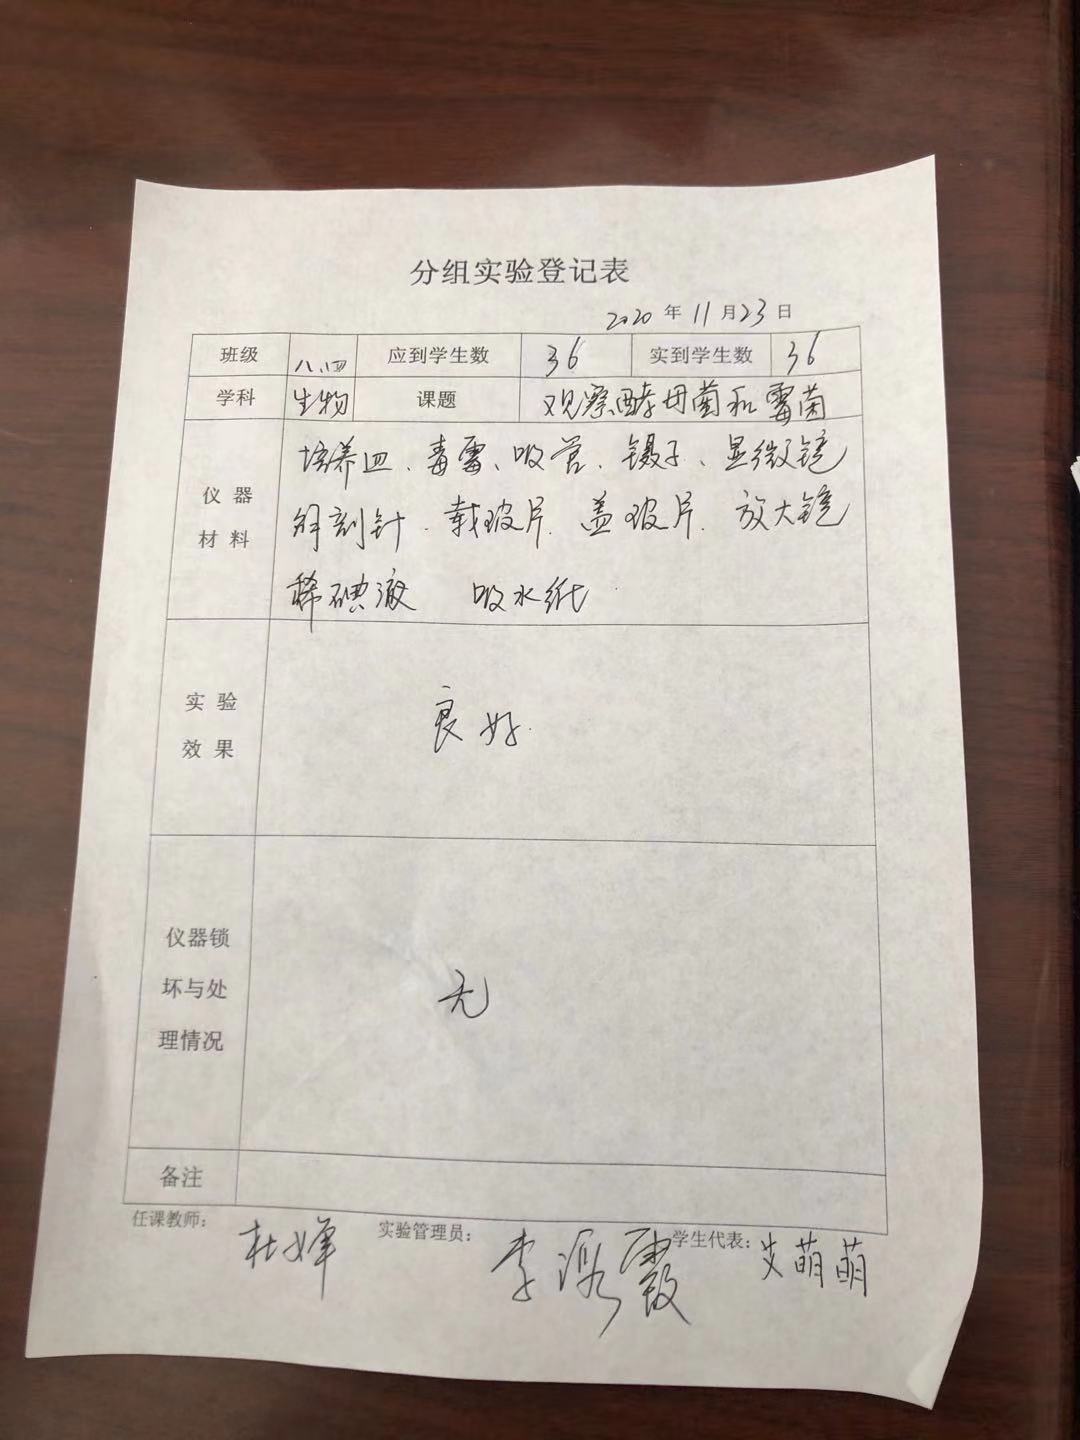 分组实验登记表
2020 年 11 月 23 日
班级 八.四 应到学生数 36 实到学生数 36
学科 生物 课题 观察酵母菌和霉菌
仪器 培养皿、毒霉、吸管、镊子、显微镜
材料 解剖针、载玻片、盖玻片、放大镜
稀碘液 吸水纸
实验
效果 良好
仪器锁
坏与处 无
理情况
备注
任课教师： 杜婵 实验管理员： 李 霞 学生代表： 艾萌萌